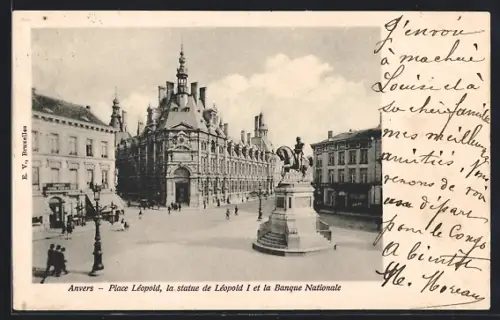 E. V., Bruxelles
Anvers — Place Léopold, la statue de Léopold I et la Banque Nationale
J'envoie
à
Louise et à
sa chère famille
mes meilleures
amitiés,
venons de voir
départ
pour le Congo
A bientôt
M. Moreau